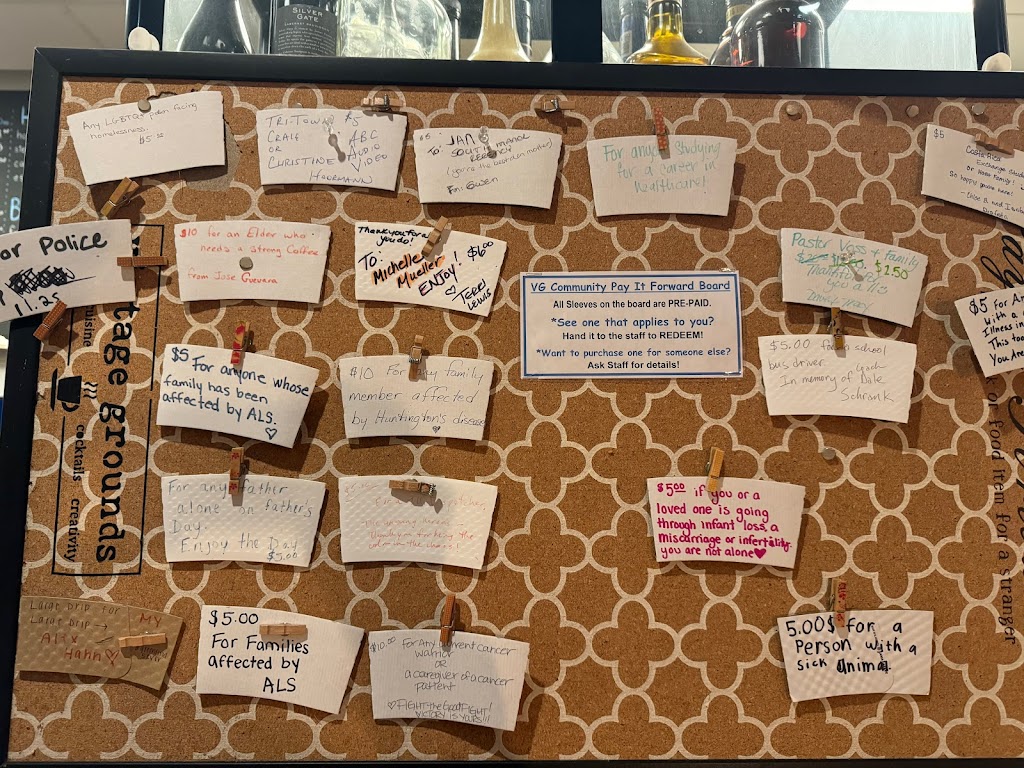 SILVER
GATE
Any LGBTQ+ person facing
homelessness.
$5.00
TRI-TOWN $5
CRAIG ABC
OR AUDIO
CHRISTINE VIDEO
HOORMANN
$5 JAN
TO: SOUTH MANOR
REGENCY
(you're the best den mother)
For anyone studying
for a career in
healthcare!
$5
Costa Rica
Exchange Stude
or Host Family!
So happy you're here!
or POLICE
11.25
$10 for an Elder who
needs a strong Coffee
from Jose Guevara
Thank you for all
you do!
TO: $6.00
Michelle
Mueller
ENJOY!
♡ TERRI
LEWIS
VG Community Pay It Forward Board
All Sleeves on the board are PRE-PAID.
*See one that applies to you?
Hand it to the staff to REDEEM!
*Want to purchase one for someone else?
Ask Staff for details!
Pastor Voss + family
$1.50
Thank
you
$5 for An
with a
Illness in
This too
You Are
$5 For anyone whose
family has been
affected by ALS.
♡
$10 For any family
member affected
by Huntington's disease
♡
$5.00 for a school
bus driver.
In memory of Dale
Schronk
tage grounds
uisine
cocktails
creativity
For any father
alone on father's
Day.
Enjoy the Day
$5.00
$5.00 if you or a
loved one is going
through infant loss, a
miscarriage or infertility.
you are not alone♥
or food item for a stranger
Large Drip for MY
Large Drip →
Alex
Hahn♡
$5.00
For Families
affected by
ALS
$10.00 For Any current cancer
warrior
OR
a caregiver of a cancer
patient
♡ FIGHT the Good FIGHT!
VICTORY IS YOURS!!!
5.00$ For a
Person with a
sick animal